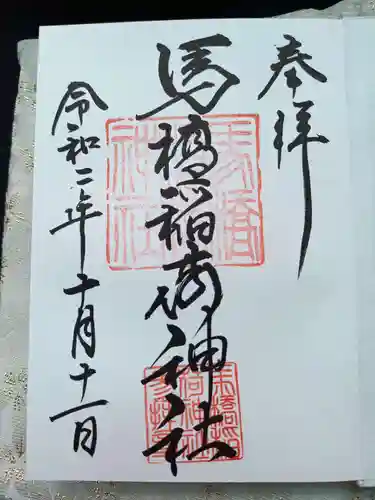 奉拝
馬橋稲荷神社
令和二年十月十一日